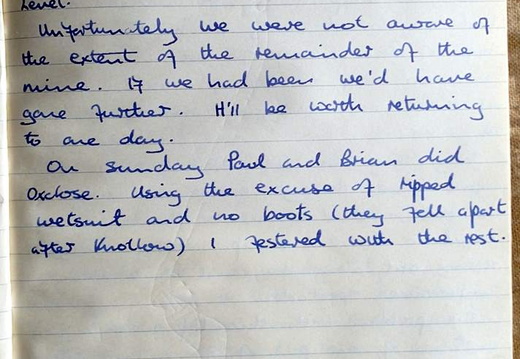 Level.
Unfortunately we were not aware of
the extent of the remainder of the
mine. If we had been we'd have
gone further. It'll be worth returning
to one day.
On sunday Paul and Brian did
Oxclose. Using the excuse of ripped
wetsuit and no boots (they fell apart
after Knollow) I festered with the rest.